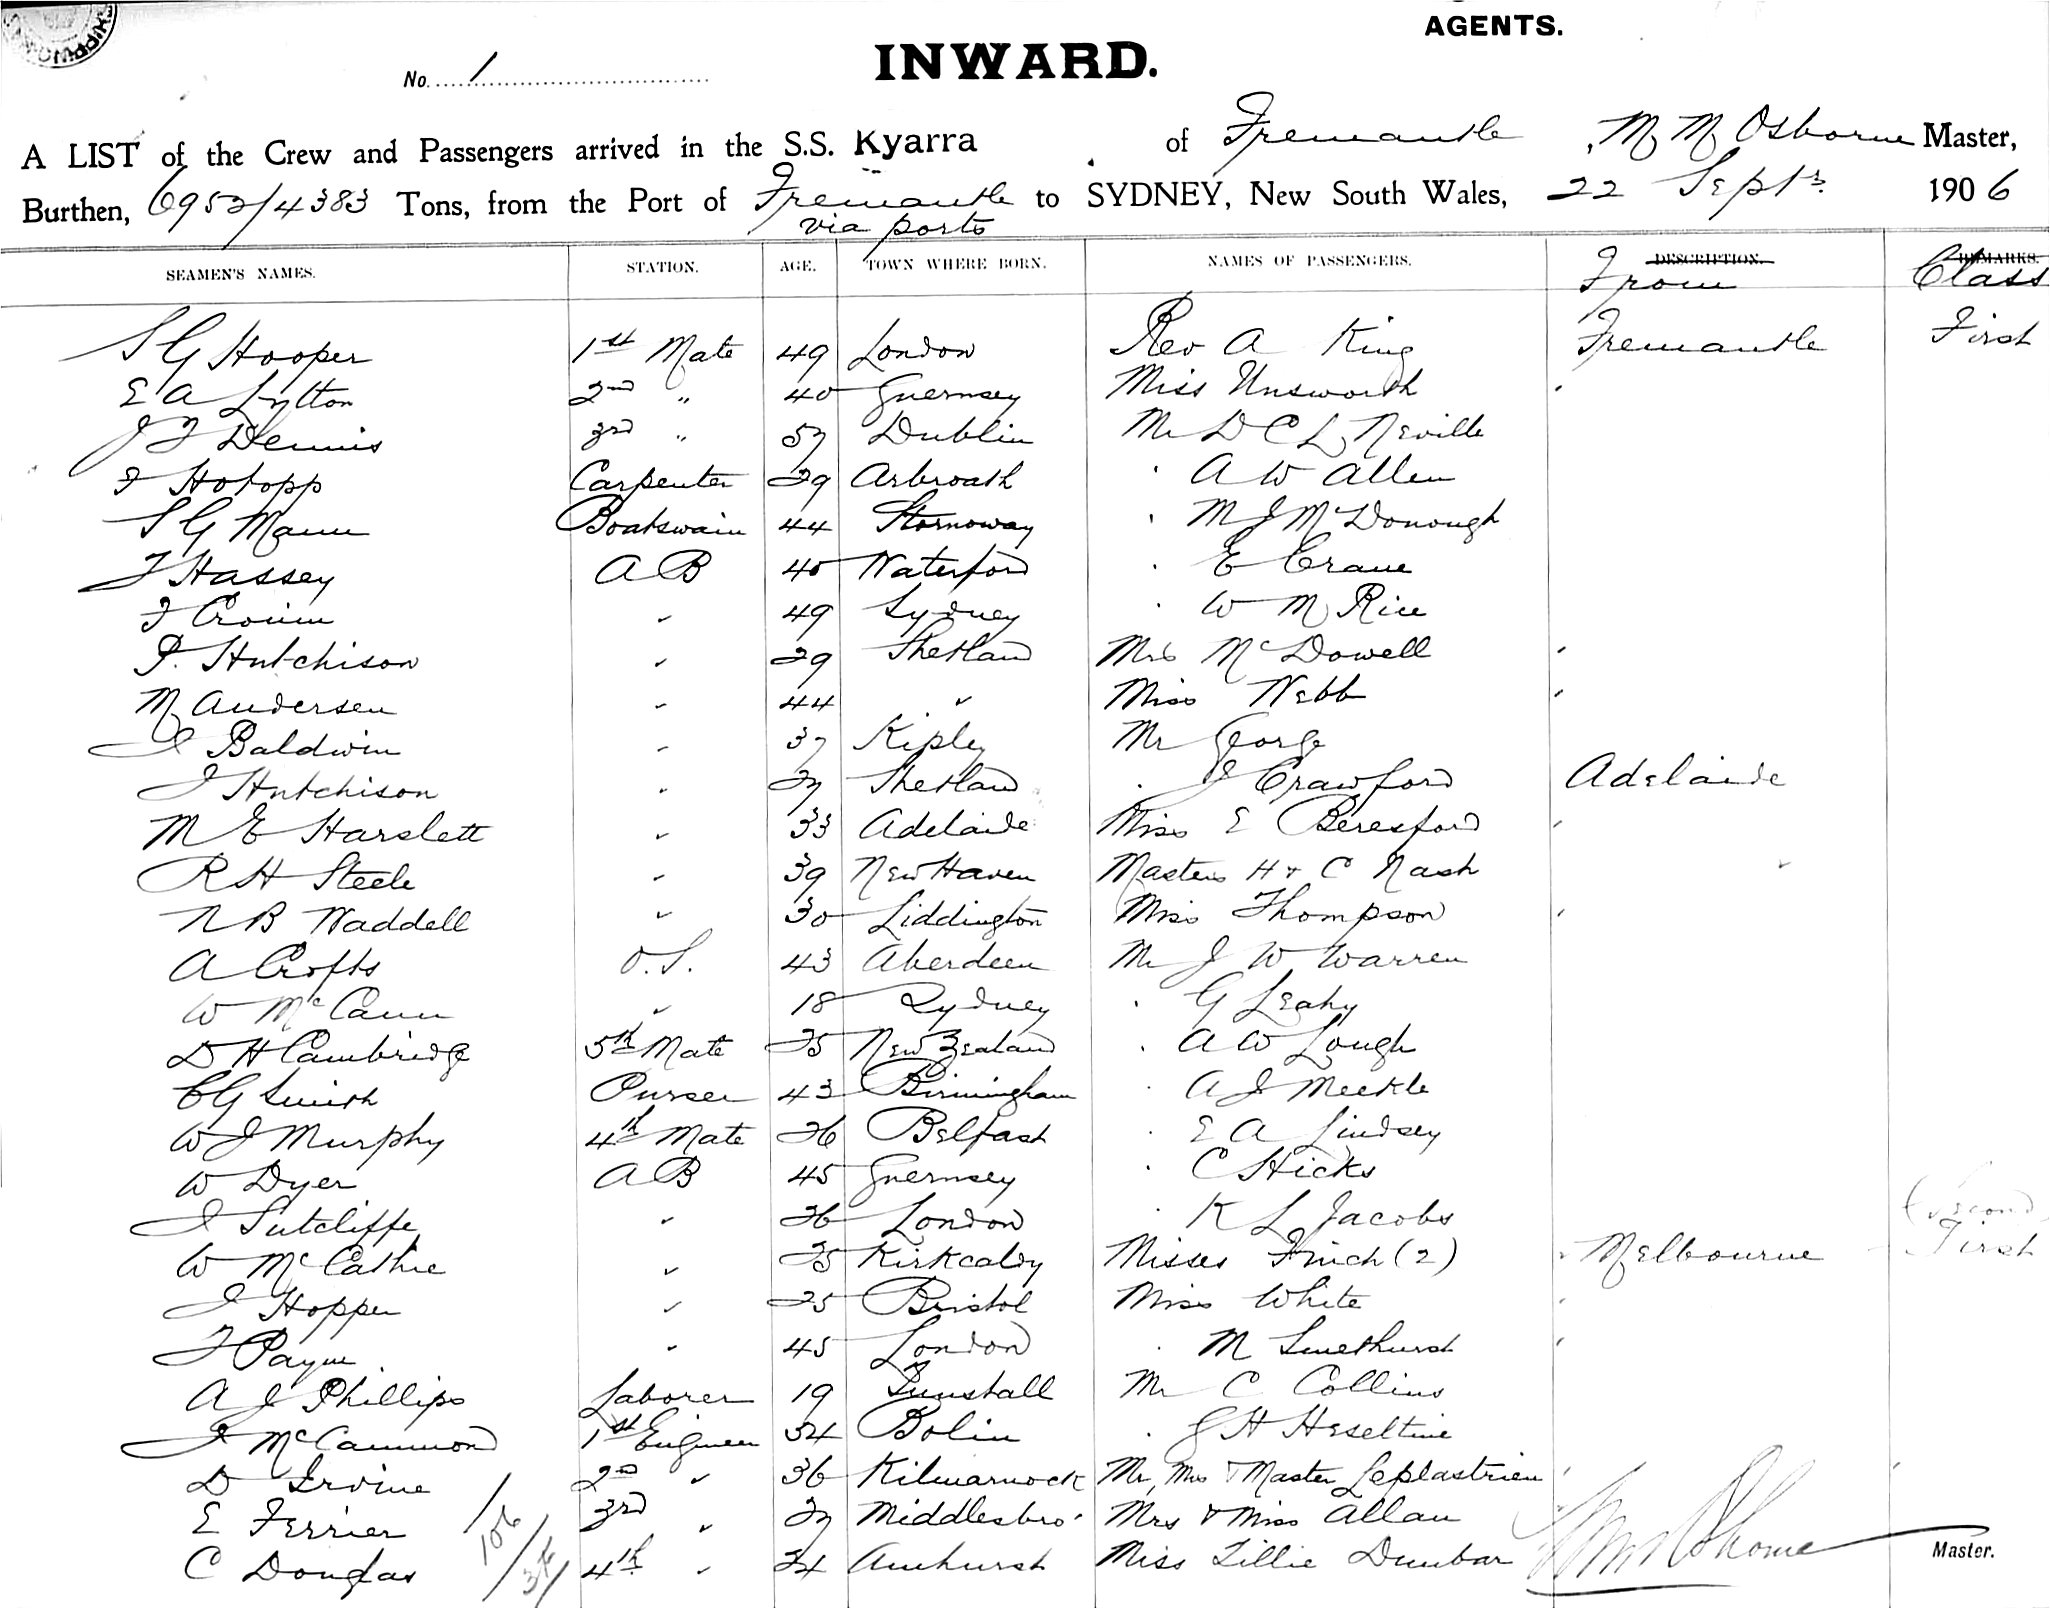 AGENTS.
INWARD.
No. 1
A LIST of the Crew and Passengers arrived in the S.S. Kyarra of Fremantle, M M Osborne Master,
Burthen, 6952/4383 Tons, from the Port of Fremantle to SYDNEY, New South Wales, 22 Septr 1906
via ports
SEAMEN'S NAMES. STATION. AGE. TOWN WHERE BORN. NAMES OF PASSENGERS. DESCRIPTION. REMARKS.
From Class
S G Hooper 1st Mate 49 London Rev A King Fremantle First
E A Lytton 2nd " 40 Guernsey Miss Unsworth
J F Dennis 3rd " 57 Dublin Mr D C L Neville
F Hotopp Carpenter 29 Arbroath A W Allen
S G Mann Boatswain 44 Stornoway M J McDonough
J Hassey A B 40 Waterford E Crane
F Cronin " 49 Sydney W M Rice
P. Hutchison " 29 Shetland Mrs McDowell
M Andersen " 44 " Miss Webb
J Baldwin " 37 Kipley Mr George
J Hutchison " 27 Shetland J Crawford Adelaide
M E Harslett " 33 Adelaide Miss E Beresford
R H Steele " 39 New Haven Masters H & C Nash
N B Waddell " 30 Liddington Miss Thompson
A Crofts O.S. 43 Aberdeen Mr J W Warren
W McCann " 18 Sydney G Leahy
D H Cambridge 5th Mate 25 New Zealand A W Lough
C G Smith Purser 43 Birmingham A J Meekle
W J Murphy 4th Mate 26 Belfast E A Lindsey
W Dyer A B 45 Guernsey C Hicks
J Sutcliffe " 26 London K L Jacobs (Second)
W McCathie " 25 Kirkcaldy Misses Finch (2) Melbourne First
J Hopper " 25 Bristol Miss White
F Payne " 45 London M Smethurst
A J Phillips Laborer 19 Tunstall Mr C Collins
J McCammond 1st Engineer 34 Bolin G H Heseltine
D Irvine 2nd " 36 Kilmarnock Mr, Mrs & Master Leplastrien
E Ferrier 3rd " 27 Middlesbro' Mrs & Miss Allan
C Douglas 4th " 24 Amhurst Miss Lillie Dunbar M M Osborne Master.